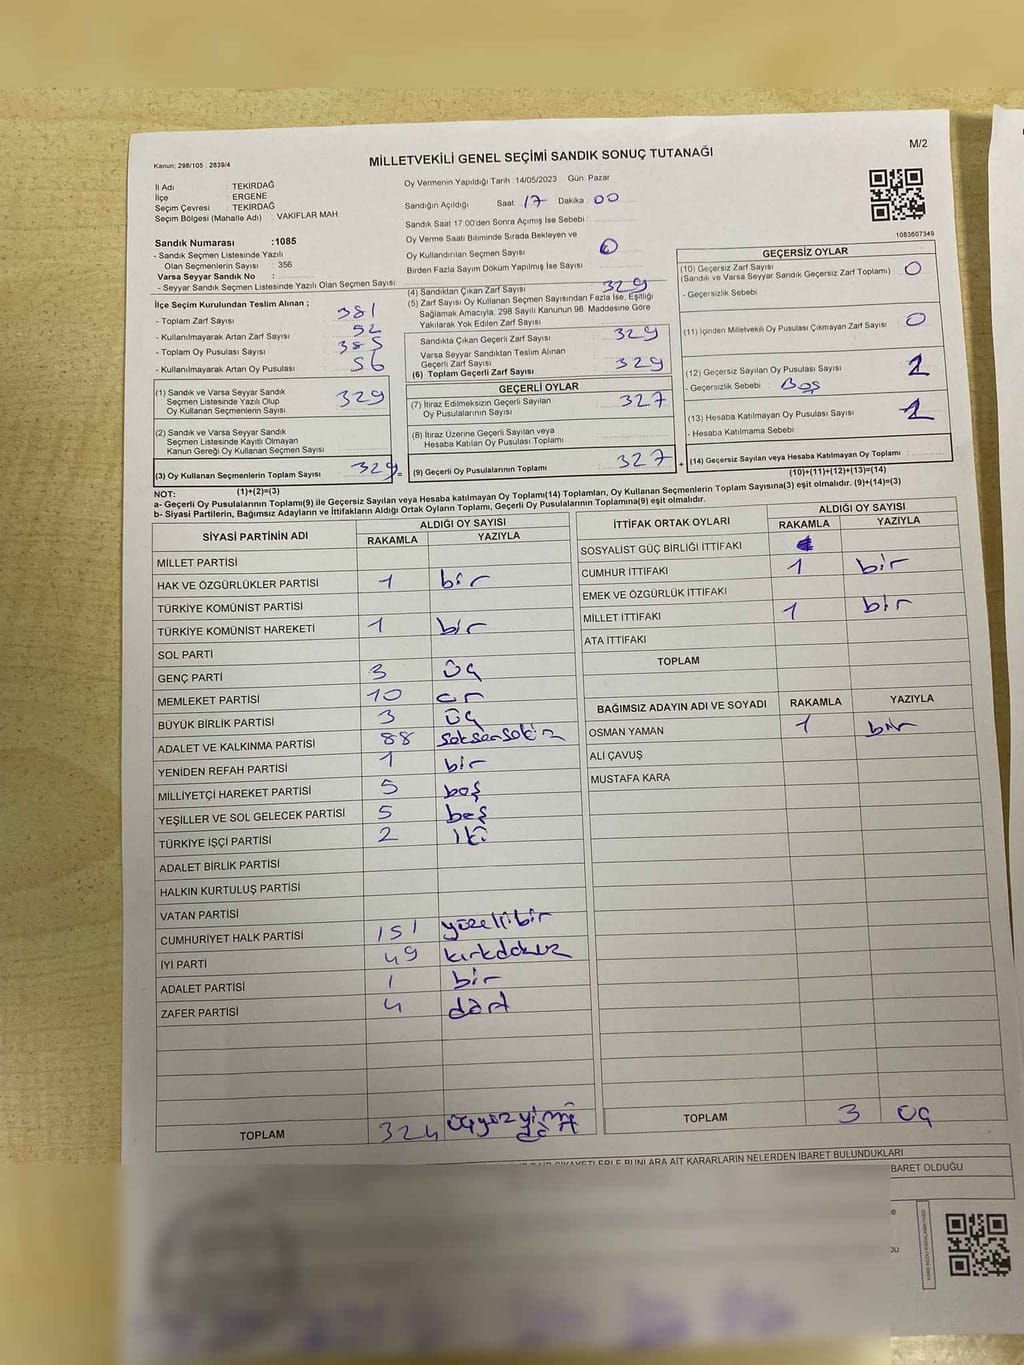 M/2
Kanun: 298/105 , 2839/4
MİLLETVEKİLİ GENEL SEÇİMİ SANDIK SONUÇ TUTANAĞI
İl Adı : TEKİRDAĞ
İlçe : ERGENE
Seçim Çevresi : TEKİRDAĞ
Seçim Bölgesi (Mahalle Adı) : VAKIFLAR MAH
Sandık Numarası :1085
- Sandık Seçmen Listesinde Yazılı
Olan Seçmenlerin Sayısı : 356
Varsa Seyyar Sandık No :
- Seyyar Sandık Seçmen Listesinde Yazılı Olan Seçmen Sayısı:
Oy Vermenin Yapıldığı Tarih :14/05/2023 Gün: Pazar
Sandığın Açıldığı Saat 17 Dakika 00
Sandık Saat 17.00'den Sonra Açımış İse Sebebi
Oy Verme Saati Bitiminde Sırada Bekleyen ve
Oy Kullandırılan Seçmen Sayısı
Birden Fazla Sayım Döküm Yapılmış İse Sayısı
1083607349
İlçe Seçim Kurulundan Teslim Alınan ;
- Toplam Zarf Sayısı 381
- Kullanılmayarak Artan Zarf Sayısı 52
- Toplam Oy Pusulası Sayısı 385
- Kullanılmayarak Artan Oy Pusulası 56
(1) Sandık ve Varsa Seyyar Sandık
Seçmen Listesinde Yazılı Olup
Oy Kullanan Seçmenlerin Sayısı 329
(2) Sandık ve Varsa Seyyar Sandık
Seçmen Listesinde Kayıtlı Olmayan
Kanun Gereği Oy Kullanan Seçmen Sayısı
(3) Oy Kullanan Seçmenlerin Toplam Sayısı 329 =
(1)+(2)=(3)
(4) Sandıktan Çıkan Zarf Sayısı 329
(5) Zarf Sayısı Oy Kullanan Seçmen Sayısından Fazla İse, Eşitliği
Sağlamak Amacıyla, 298 Sayılı Kanunun 98. Maddesine Göre
Yakılarak Yok Edilen Zarf Sayısı
Sandıkta Çıkan Geçerli Zarf Sayısı 329
Varsa Seyyar Sandıktan Teslim Alınan
Geçerli Zarf Sayısı
(6) Toplam Geçerli Zarf Sayısı 329
GEÇERLİ OYLAR
(7) İtiraz Edilmeksizin Geçerli Sayılan
Oy Pusulalarının Sayısı 327
(8) İtiraz Üzerine Geçerli Sayılan veya
Hesaba Katılan Oy Pusulası Toplamı
(9) Geçerli Oy Pusulalarının Toplamı 327 +
GEÇERSİZ OYLAR
(10) Geçersiz Zarf Sayısı 0
(Sandık ve Varsa Seyyar Sandık Geçersiz Zarf Toplamı)
- Geçersizlik Sebebi :
(11) İçinden Milletvekili Oy Pusulası Çıkmayan Zarf Sayısı 0
(12) Geçersiz Sayılan Oy Pusulası Sayısı 1
- Geçersizlik Sebebi : Boş
(13) Hesaba Katılmayan Oy Pusulası Sayısı 1
- Hesaba Katılmama Sebebi
(14) Geçersiz Sayılan veya Hesaba Katılmayan Oy Toplamı
(10)+(11)+(12)+(13)=(14)
NOT:
a- Geçerli Oy Pusulasının Toplamı(9) ile Geçersiz Sayılan veya Hesaba katılmayan Oy Toplamı(14) Toplamları, Oy Kullanan Seçmenlerin Toplam Sayısına(3) eşit olmalıdır. (9)+(14)=(3)
b- Siyasi Partilerin, Bağımsız Adayların ve İttifakların Aldığı Ortak Oyların Toplamı, Geçerli Oy Pusulalarının Toplamına(9) eşit olmalıdır.
SİYASİ PARTİNİN ADI ALDIĞI OY SAYISI
RAKAMLA YAZIYLA
MİLLET PARTİSİ
HAK VE ÖZGÜRLÜKLER PARTİSİ 1 bir
TÜRKİYE KOMÜNİST PARTİSİ
TÜRKİYE KOMÜNİST HAREKETİ 1 bir
SOL PARTİ
GENÇ PARTİ 3 üç
MEMLEKET PARTİSİ 10 on
BÜYÜK BİRLİK PARTİSİ 3 üç
ADALET VE KALKINMA PARTİSİ 88 seksensekiz
YENİDEN REFAH PARTİSİ 1 bir
MİLLİYETÇİ HAREKET PARTİSİ 5 beş
YEŞİLLER VE SOL GELECEK PARTİSİ 5 beş
TÜRKİYE İŞÇİ PARTİSİ 2 iki
ADALET BİRLİK PARTİSİ
HALKIN KURTULUŞ PARTİSİ
VATAN PARTİSİ
CUMHURİYET HALK PARTİSİ 151 yüzellibir
İYİ PARTİ 49 kırkdokuz
ADALET PARTİSİ 1 bir
ZAFER PARTİSİ 4 dört
TOPLAM 324 üçyüzyirmidört
İTTİFAK ORTAK OYLARI ALDIĞI OY SAYISI
RAKAMLA YAZIYLA
SOSYALİST GÜÇ BİRLİĞİ İTTİFAKI
CUMHUR İTTİFAKI 1 bir
EMEK VE ÖZGÜRLÜK İTTİFAKI
MİLLET İTTİFAKI 1 bir
ATA İTTİFAKI
TOPLAM
BAĞIMSIZ ADAYIN ADI VE SOYADI RAKAMLA YAZIYLA
OSMAN YAMAN 1 bir
ALİ ÇAVUŞ
MUSTAFA KARA
TOPLAM 3 üç
KARARLARIN NELERDEN İBARET BULUNDUKLARI
BARET OLDUĞU